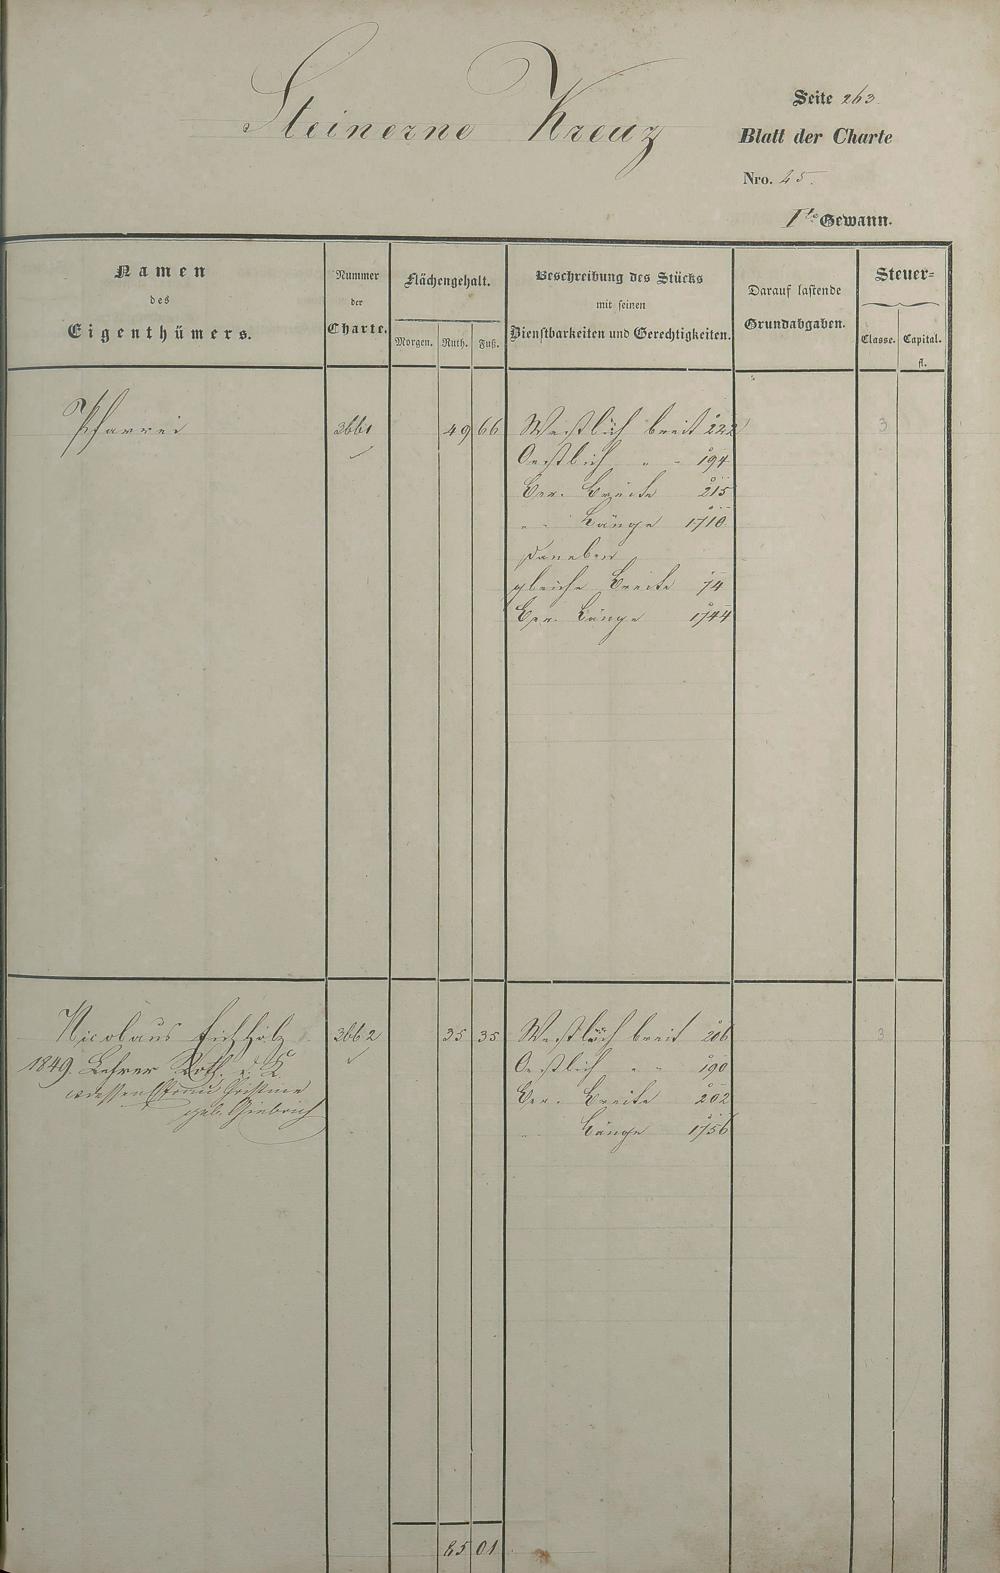 Steinerne Kreuz
Seite 263.
Blatt der Charte
Nro. 45.
Ite Gewann.
Namen
des
Eigenthümers.
Nummer
der
Charte.
Flächengehalt.
Morgen. Ruth. Fuß.
Beschreibung des Stücks
mit seinen
Dienstbarkeiten und Gerechtigkeiten.
Darauf lastende
Grundabgaben.
Steuer=
Classe. Capital.
fl.
Pfarrei 3661 49 66 Westlich breit 222 3
Oestlich " - 194
Ber. Breite 215
" - Länge 1710
Daneben
gleiche Breite 74
Ber. Länge 1744
Nicolaus Eichholz 3662 35 35 Westlich breit 206 3
1849. Lehrer Roth. d. K. Oestlich " - 190
u. dessen Ehefrau Christine Ber. Breite 202
geb. Länge 1756
85 01